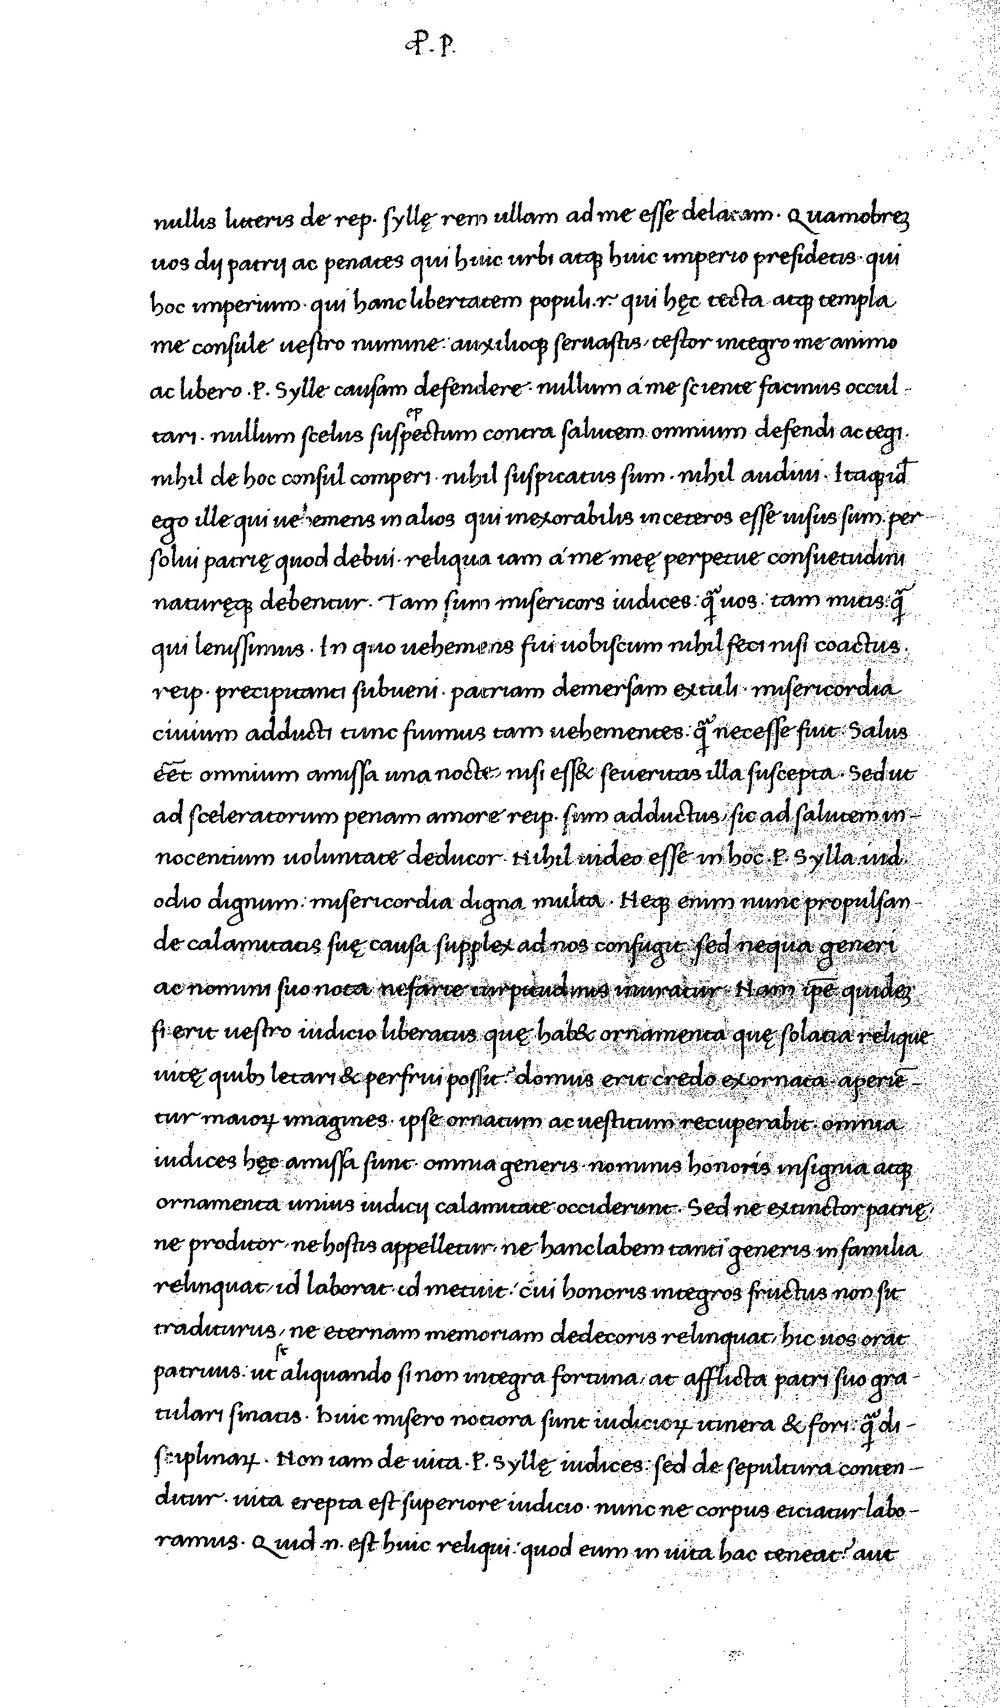 P. P.
nullis litteris de rep. syllę rem ullam ad me esse delatam. Quamobreꝫ
uos dij patrij ac penates qui huic urbi atqꝫ huic imperio presidetis. qui
hoc imperium. qui hanc libertatem populi .r. qui hęc tecta atqꝫ templa
me consule uestro numine: auxilioqꝫ seruastis, testor integro me animo
ac libero .P. Sylle causam defendere. nullum á me sciente facinus occul-
tari. nullum scelus susceptum contra salutem omnium defendi ac tegi.
nihil de hoc consul comperi. nihil suspicatus sum. nihil audiui. Itaqꝫ id̅
ego ille qui uehemens in alios qui inexorabilis in ceteros esse uisus sum. per-
solui patrię quod debui. reliqua iam á me meę perpetue consuetudini
naturęqꝫ debentur. Tam sum misericors iudices: q̃ uos: tam mitis: q̃
qui lenissimus. In quo uehemens fui uobiscum nihil feci nisi coactus.
reip. precipitanti subueni. patriam demersam extuli. misericordia
ciuium adducti tunc fuimus tam uehementes: q̃ necesse fuit. Salus
eēt omnium amissa una nocte, nisi ess& seueritas illa suscepta. Sed ut
ad sceleratorum penam amore reip. sum adductus, sic ad salutem in-
nocentium uoluntate deducor. Nihil uideo esse in hoc .P. Sylla iud.
odio dignum: misericordia digna multa. Neqꝫ enim nunc propulsan-
de calamitatis suę causa supplex ad nos confugit: sed nequa generi
ac nomini suo nota nefarie turpitudinis inuratur. Nam ipē quideꝫ
si erit uestro iudicio liberatus quę hab& ornamenta quę solatia relique
uitę quibꝫ letari & perfrui possit? domus erit credo exornata. aperiē-
tur maioꝝ imagines. ipse ornatum ac uestitum recuperabit. omnia
iudices hęc amissa sunt. omnia generis. nominis honoris insignia atqꝫ
ornamenta unius iudicij calamitate occiderunt. Sed ne extinctor patrię,
ne proditor, ne hostis appelletur, ne hanc labem tanti generis in familia
relinquat, id laborat. id metuit. cui honoris integros fructus non sit
traditurus, ne eternam memoriam dedecoris relinquat, hic uos orat
patruus: ut se aliquando si non integra fortuna, at afflicta patri suo gra-
tulari sinatis. Huic misero notiora sunt iudicioꝝ itinera & fori: q̃ di-
sciplinaꝝ. Non iam de uita .P. Syllę iudices: sed de sepultura conten-
ditur. uita erepta est superiore iudicio. nunc ne corpus eiciatur labo-
ramus. Quid .n. est huic reliqui: quod eum in uita hac teneat? aut